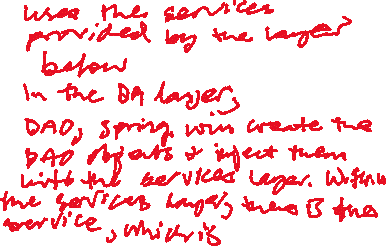 uses the services
provided by the layer
below
In the DA layer,
DAO, spring will create the
DAO objects & inject them
into the services layer. Within
the services layer, there is the
service, which is